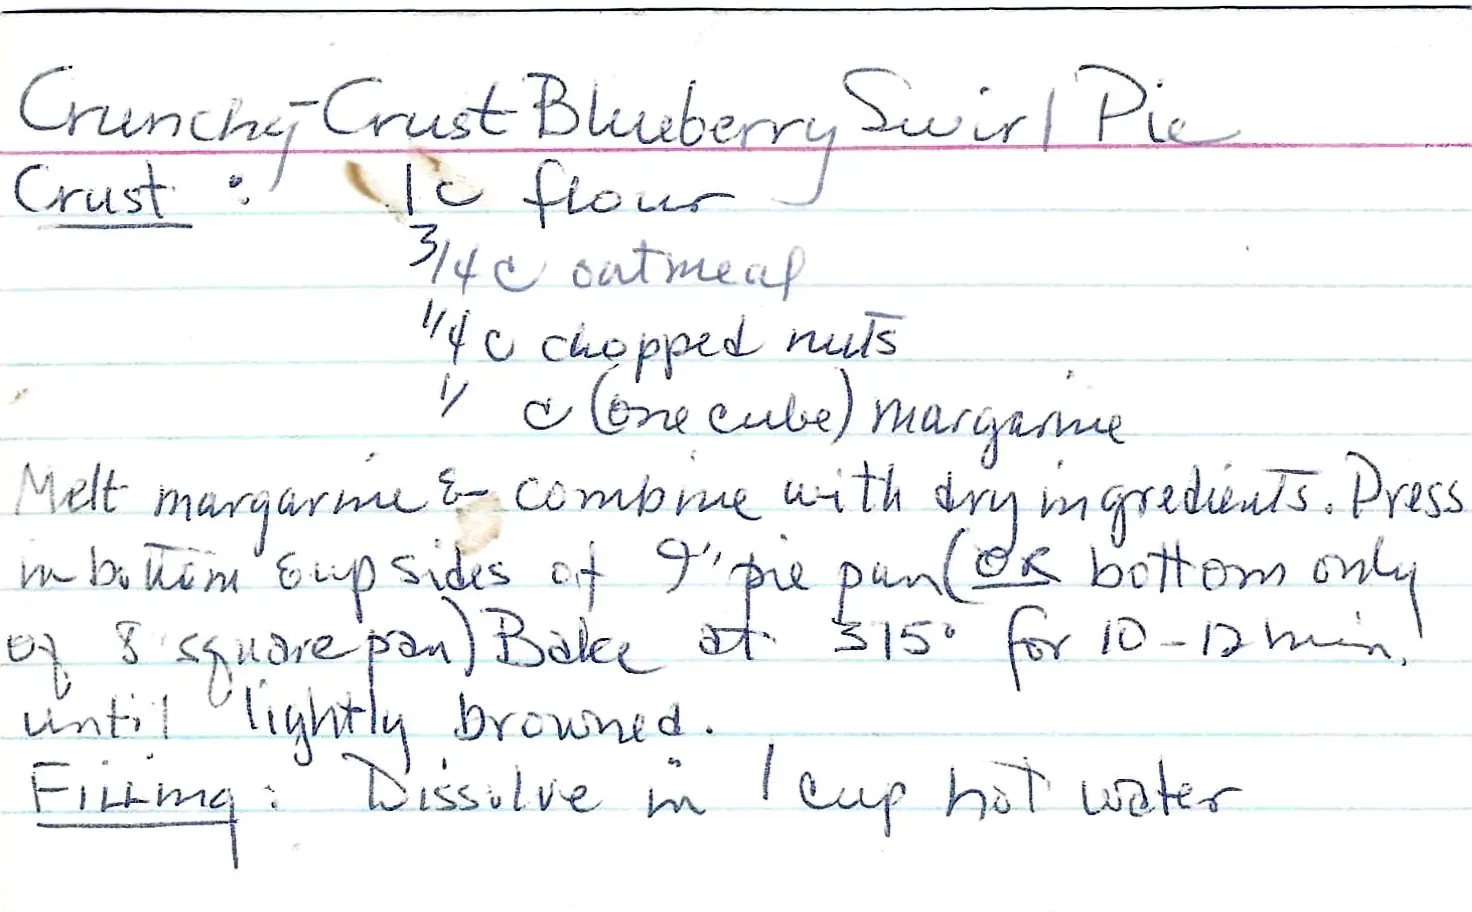 Crunchy-Crust Blueberry Swirl Pie
Crust: 1c flour
3/4 c oatmeal
1/4 c chopped nuts
1/ c (one cube) margarine
Melt margarine & combine with dry ingredients. Press
in bottom & up sides of 9" pie pan (OR bottom only
of 8 square pan) Bake at 375° for 10-12 min.
until lightly browned.
Filling: Dissolve in 1 cup hot water